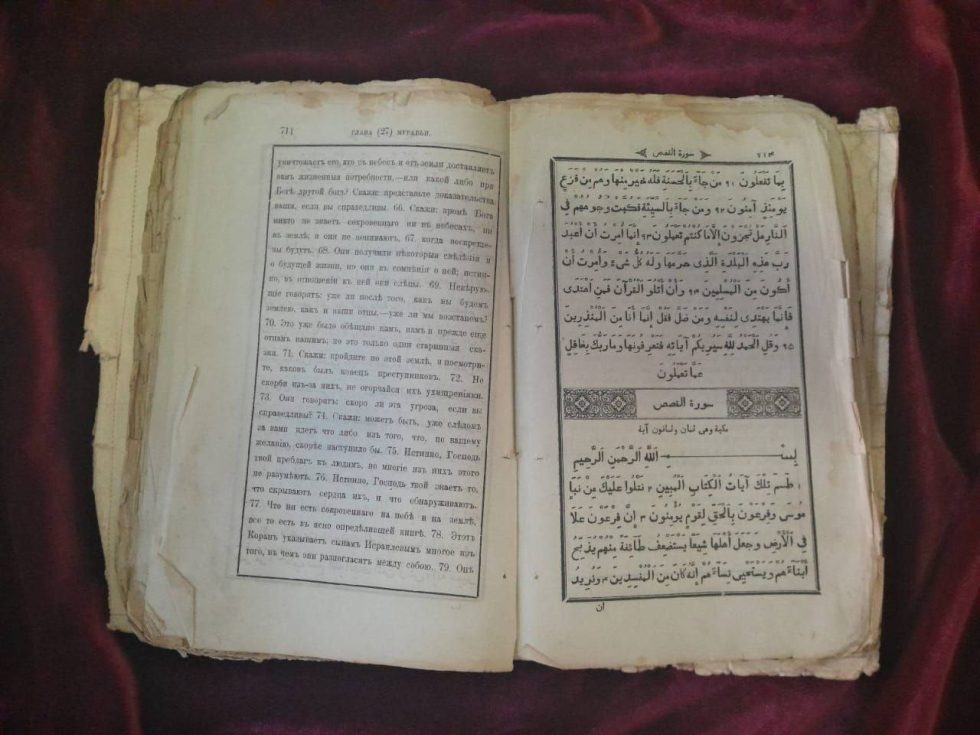 711 ГЛАВА (27) МУРАВЬИ.
уничтожаетъ его, кто съ небесъ и отъ земли доставляетъ
вамъ жизненныя потребности,—или какой либо при
Богѣ другой богъ? Скажи: представьте доказательства
ваши, если вы справедливы. 66. Скажи: кромѣ Бога
никто не знаетъ сокровеннаго ни въ небесахъ, ни
въ землѣ, и они не понимаютъ, 67. когда воскреше-
ны будутъ. 68. Они получили нѣкоторыя свѣдѣнія и
о будущей жизни, но они въ сомнѣніи о ней; истин-
но, въ отношеніи къ ней они слѣпы. 69. Невѣрую-
щіе говорятъ: уже ли послѣ того, какъ мы будемъ
землею, какъ и наши отцы,—уже ли мы возстанемъ?
70. Это уже было обѣщано намъ, намъ и прежде еще
отцамъ нашимъ; но это только одни старинныя ска-
зки. 71. Скажи: пройдите по этой землѣ, и посмотри-
те, каковъ былъ конецъ преступниковъ. 72. Не
скорби изъ-за нихъ, не огорчайся ихъ ухищреніями.
73. Они говорятъ: скоро ли эта угроза, если вы
справедливы? 74. Скажи: можетъ быть, уже слѣдомъ
за вами идетъ что либо изъ того, что, по вашему
желанію, скорѣе наступило бы. 75. Истинно, Господь
твой преблагъ къ людямъ, но многіе изъ нихъ этого
не разумѣютъ. 76. Истинно, Господь твой знаетъ то,
что скрываютъ сердца ихъ, и что обнаруживаютъ.
77. Что ни есть сокровеннаго на небѣ и на землѣ,
все то есть въ ясно опредѣляющей книгѣ. 78. Этотъ
Коранъ указываетъ сынамъ Израилевымъ многое изъ
того, въ чемъ они разногласятъ между собою. 79. Онъ
سورة القصص ٧١٣
بِمَا تَفْعَلُونَ ٩١ مَنْ جَاءَ بِالْحَسَنَةِ فَلَهُ خَيْرٌ مِنْهَا وَهُمْ مِنْ فَزَعٍ
يَوْمَئِذٍ آمِنُونَ ٩٢ وَمَنْ جَاءَ بِالسَّيِّئَةِ فَكُبَّتْ وُجُوهُهُمْ فِي
النَّارِ هَلْ تُجْزَوْنَ إِلَّا مَا كُنْتُمْ تَعْمَلُونَ ٩٣ إِنَّمَا أُمِرْتُ أَنْ أَعْبُدَ
رَبَّ هَذِهِ الْبَلْدَةِ الَّذِي حَرَّمَهَا وَلَهُ كُلُّ شَيْءٍ وَأُمِرْتُ أَنْ
أَكُونَ مِنَ الْمُسْلِمِينَ ٩٤ وَأَنْ أَتْلُوَ الْقُرْآنَ فَمَنِ اهْتَدَى
فَإِنَّمَا يَهْتَدِي لِنَفْسِهِ وَمَنْ ضَلَّ فَقُلْ إِنَّمَا أَنَا مِنَ الْمُنْذِرِينَ
٩٥ وَقُلِ الْحَمْدُ لِلَّهِ سَيُرِيكُمْ آيَاتِهِ فَتَعْرِفُونَهَا وَمَا رَبُّكَ بِغَافِلٍ
عَمَّا تَعْمَلُونَ
سورة القصص
مكية وهى ثمان وثمانون آية
بِسْمِ اللَّهِ الرَّحْمَنِ الرَّحِيمِ
١ طسم تِلْكَ آيَاتُ الْكِتَابِ الْمُبِينِ ٢ نَتْلُوا عَلَيْكَ مِنْ نَبَإِ
مُوسَى وَفِرْعَوْنَ بِالْحَقِّ لِقَوْمٍ يُؤْمِنُونَ ٣ إِنَّ فِرْعَوْنَ عَلَا
فِي الْأَرْضِ وَجَعَلَ أَهْلَهَا شِيَعًا يَسْتَضْعِفُ طَائِفَةً مِنْهُمْ يُذَبِّحُ
أَبْنَاءَهُمْ وَيَسْتَحْيِي نِسَاءَهُمْ إِنَّهُ كَانَ مِنَ الْمُفْسِدِينَ ٤ وَنُرِيدُ
ان